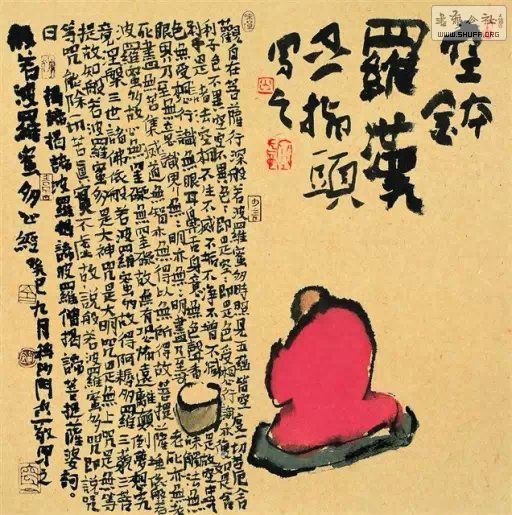 鉢
羅漢
指頭
写之
觀自在菩薩行深般若波羅蜜多時照見五蘊皆空度一切苦厄舍
利子色不異空空不異色色即是空空即是色受想行識亦復如是舍
利子是諸法空相不生不滅不垢不淨不增不減是故空中無
色無受想行識無眼耳鼻舌身意無色聲香味觸法無
眼界乃至無意識界無無明亦無無明盡乃至無老死亦無老
死盡無苦集滅道無智亦無得以無所得故菩提薩埵依般若
波羅蜜多故心無罣礙無罣礙故無有恐怖遠離顛倒夢想究
竟涅槃三世諸佛依般若波羅蜜多故得阿耨多羅三藐三菩
提故知般若波羅蜜多是大神咒是大明咒是無上咒是無等
等咒能除一切苦真實不虛故說般若波羅蜜多咒即說咒
曰 揭諦揭諦波羅揭諦波羅僧揭諦菩提薩婆訶
般若波羅蜜多心經 癸巳九月 沙門 敬寫
書法公社
WWW.SHUFF.ORG